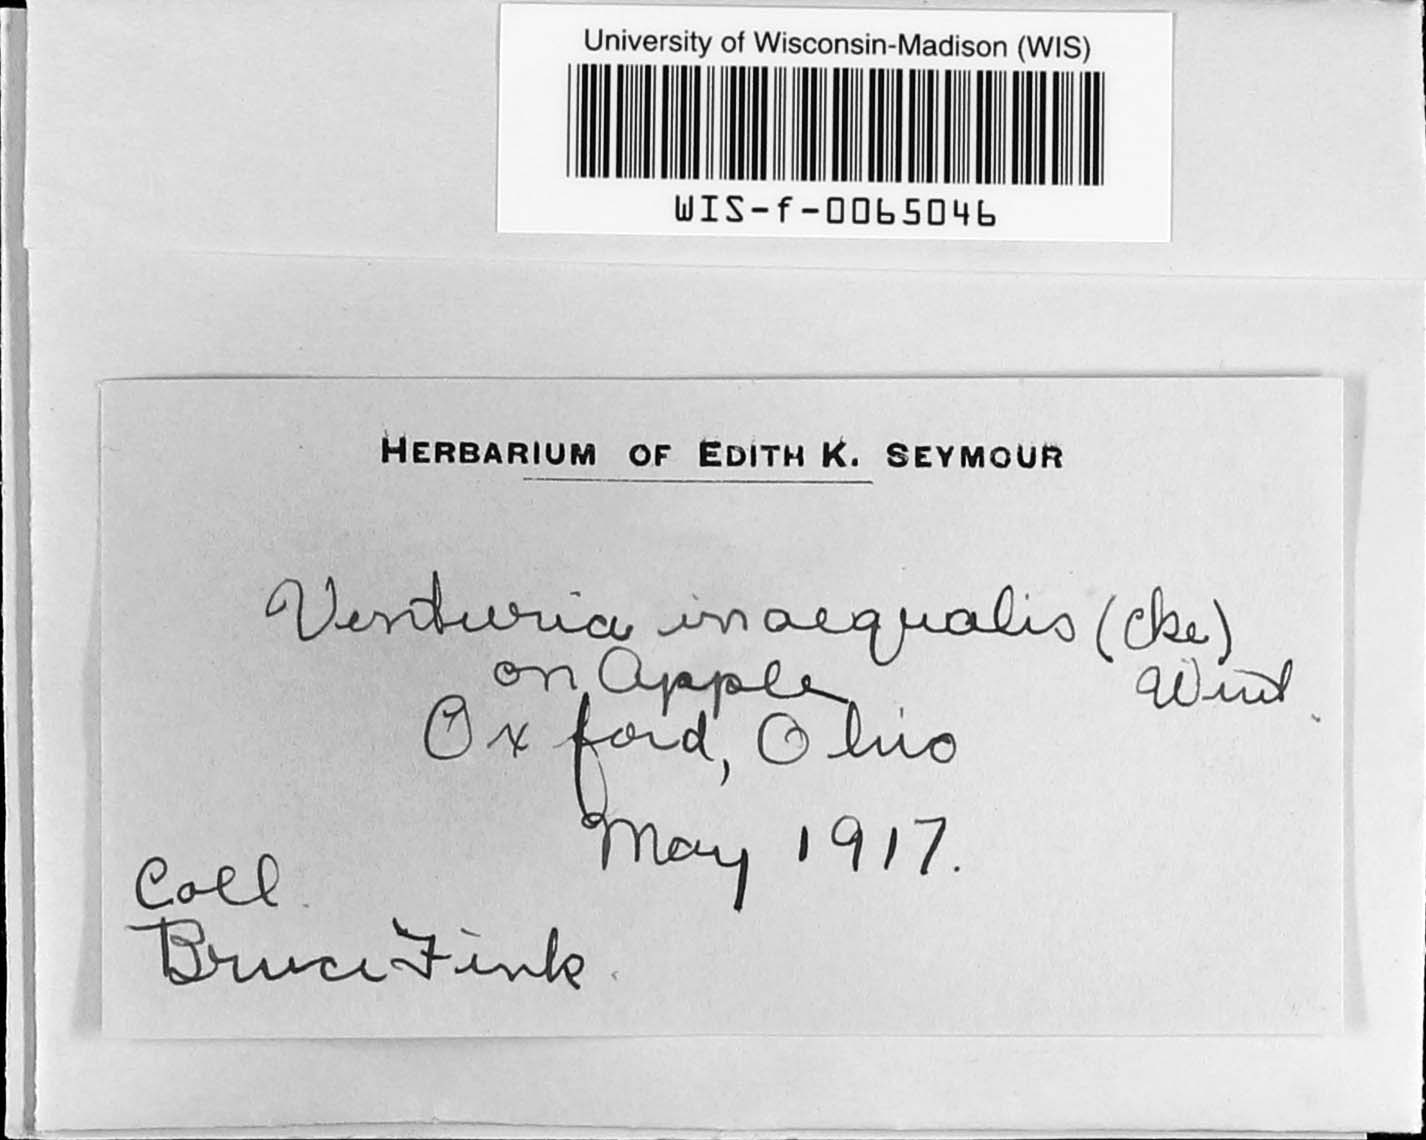 University of Wisconsin-Madison (WIS)
WIS-f-0065046
HERBARIUM OF EDITH K. SEYMOUR
Venturia inaequalis (Cke)
Wint.
on Apple
Oxford, Ohio
May 1917.
Coll.
Bruce Fink.